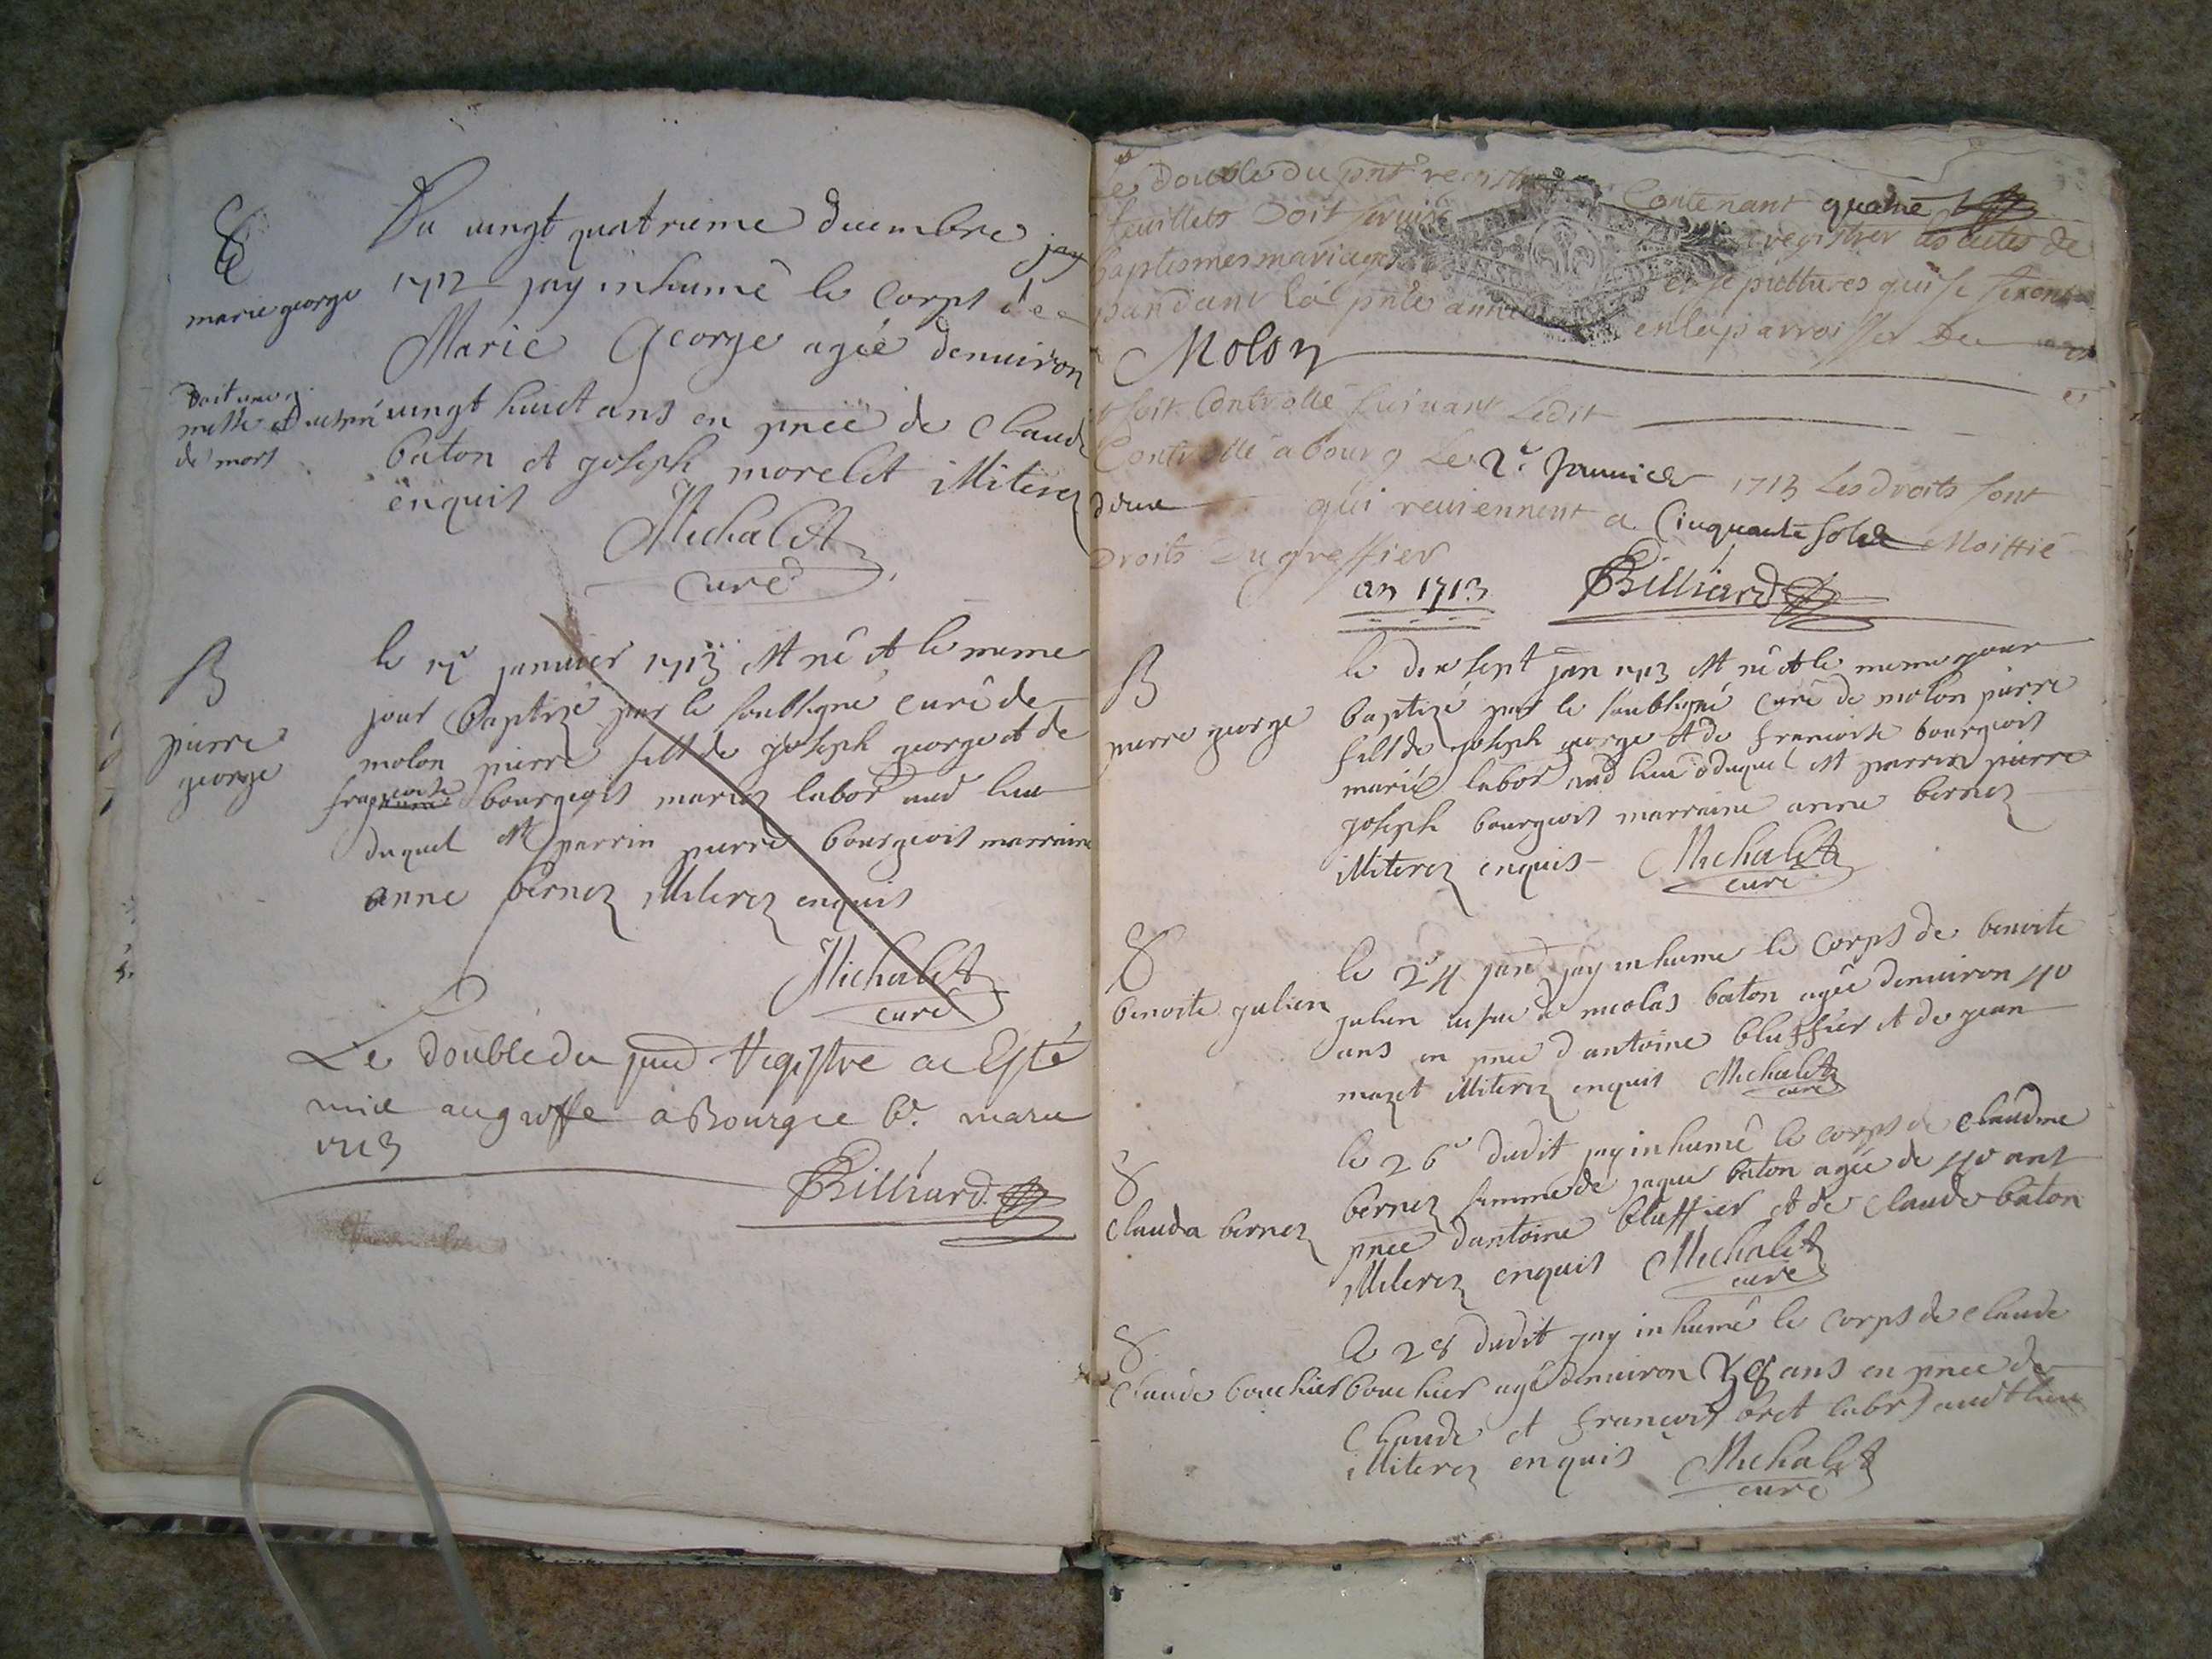 Du vingt quatrieme decembre jay
1712 jay inhumé le corps de
marie george
Marie George agée denuiron
vingt huict ans en pnce de Claude
de mort
baton et joseph morelet illiterez
enquis
Michalet
curé
B
pierre
george
le 17e januier 1713 est né et le meme
jour baptizé par le soubsigné curé de
molon pierre fils de joseph george et de
francoise bourgeois mariez labor aud lieu
duquel est parrin pierre bourgeois marraine
anne bernez illiterez enquis
Michalet
curé
Le double du pnt Registre a esté
mis au greffe a Bourg le 6e mars
1713
Billiard
Le double du pnt registre Contenant quatre
feuillets Doit seruir registrer les actes de
baptesmes mariages et sepultures qui se feront
pandant la pnte année en la parroisse De
Molon
soit Controllé suiuant Ledit
Controllé a bourg Le 2e Januier 1713 Les droits sont
deux qui reuiennent a Cinquante sols Moittié
Droits du greffier
an 1713 Billiard
B
pierre george
le dix sept jan 1713 est né et le meme jour
baptizé par le soubsigné curé de molon pierre
fils de joseph george et de francoise bourgeois
mariés labor aud lieu duquel est parrin pierre
joseph bourgeois marraine anne bernez
illiterez enquis Michalet
curé
benoite julien
le 24 janr jay inhumé le corps de benoite
julien vefue de nicolas baton agée denuiron 40
ans en pnce d antoine bluffier et de jean
mazet illiterez enquis Michalet
curé
clauda bernez
le 26e dudit jay inhumé le corps de claudine
bernez femme de jaque baton agée de 40 ans
pnce dantoine bluffier et de claude baton
illiterez enquis Michalet
curé
claude bouchier
le 28 dudit jay inhumé le corps de claude
bouchier agé denuiron ans en pnce de
Claude et francois labr audt lieu
illiterez enquis Michalet
curé